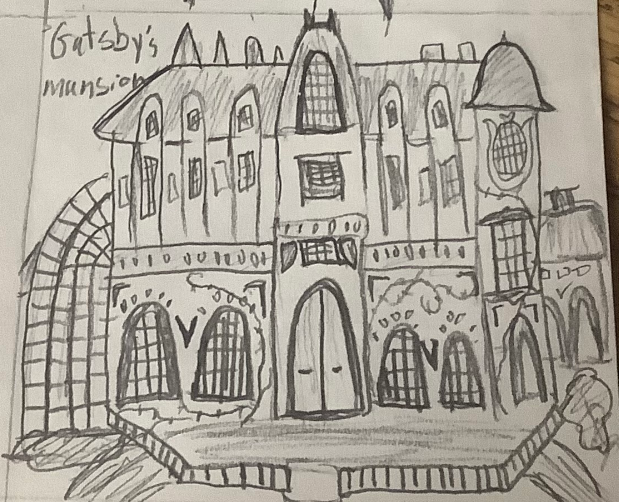 Gatsby's
mansion